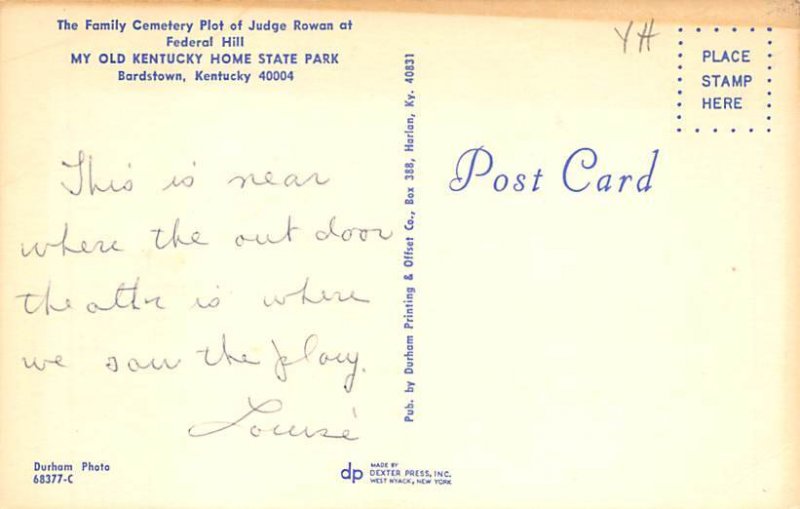 The Family Cemetery Plot of Judge Rowan at
Federal Hill
MY OLD KENTUCKY HOME STATE PARK
Bardstown, Kentucky 40004
This is near
where the out door
theatre is where
we saw the play.
Louise
Durham Photo
68377-C
dp
MADE BY
DEXTER PRESS, INC.
WEST NYACK, NEW YORK
Pub. by Durham Printing & Offset Co., Box 388, Harlan, Ky. 40831
YH
PLACE
STAMP
HERE
Post Card